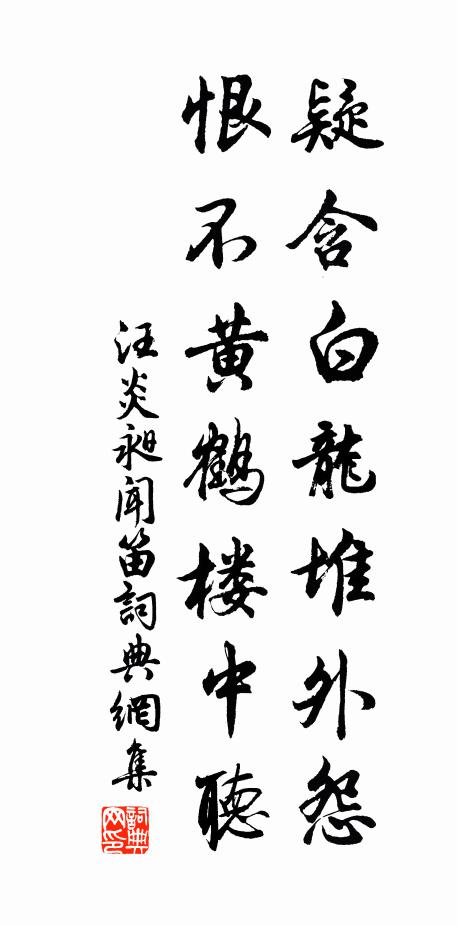 疑含白龍堆外怨
恨不黄鶴楼中聽
汪炎昶聞笛詞典網集
詞典網印